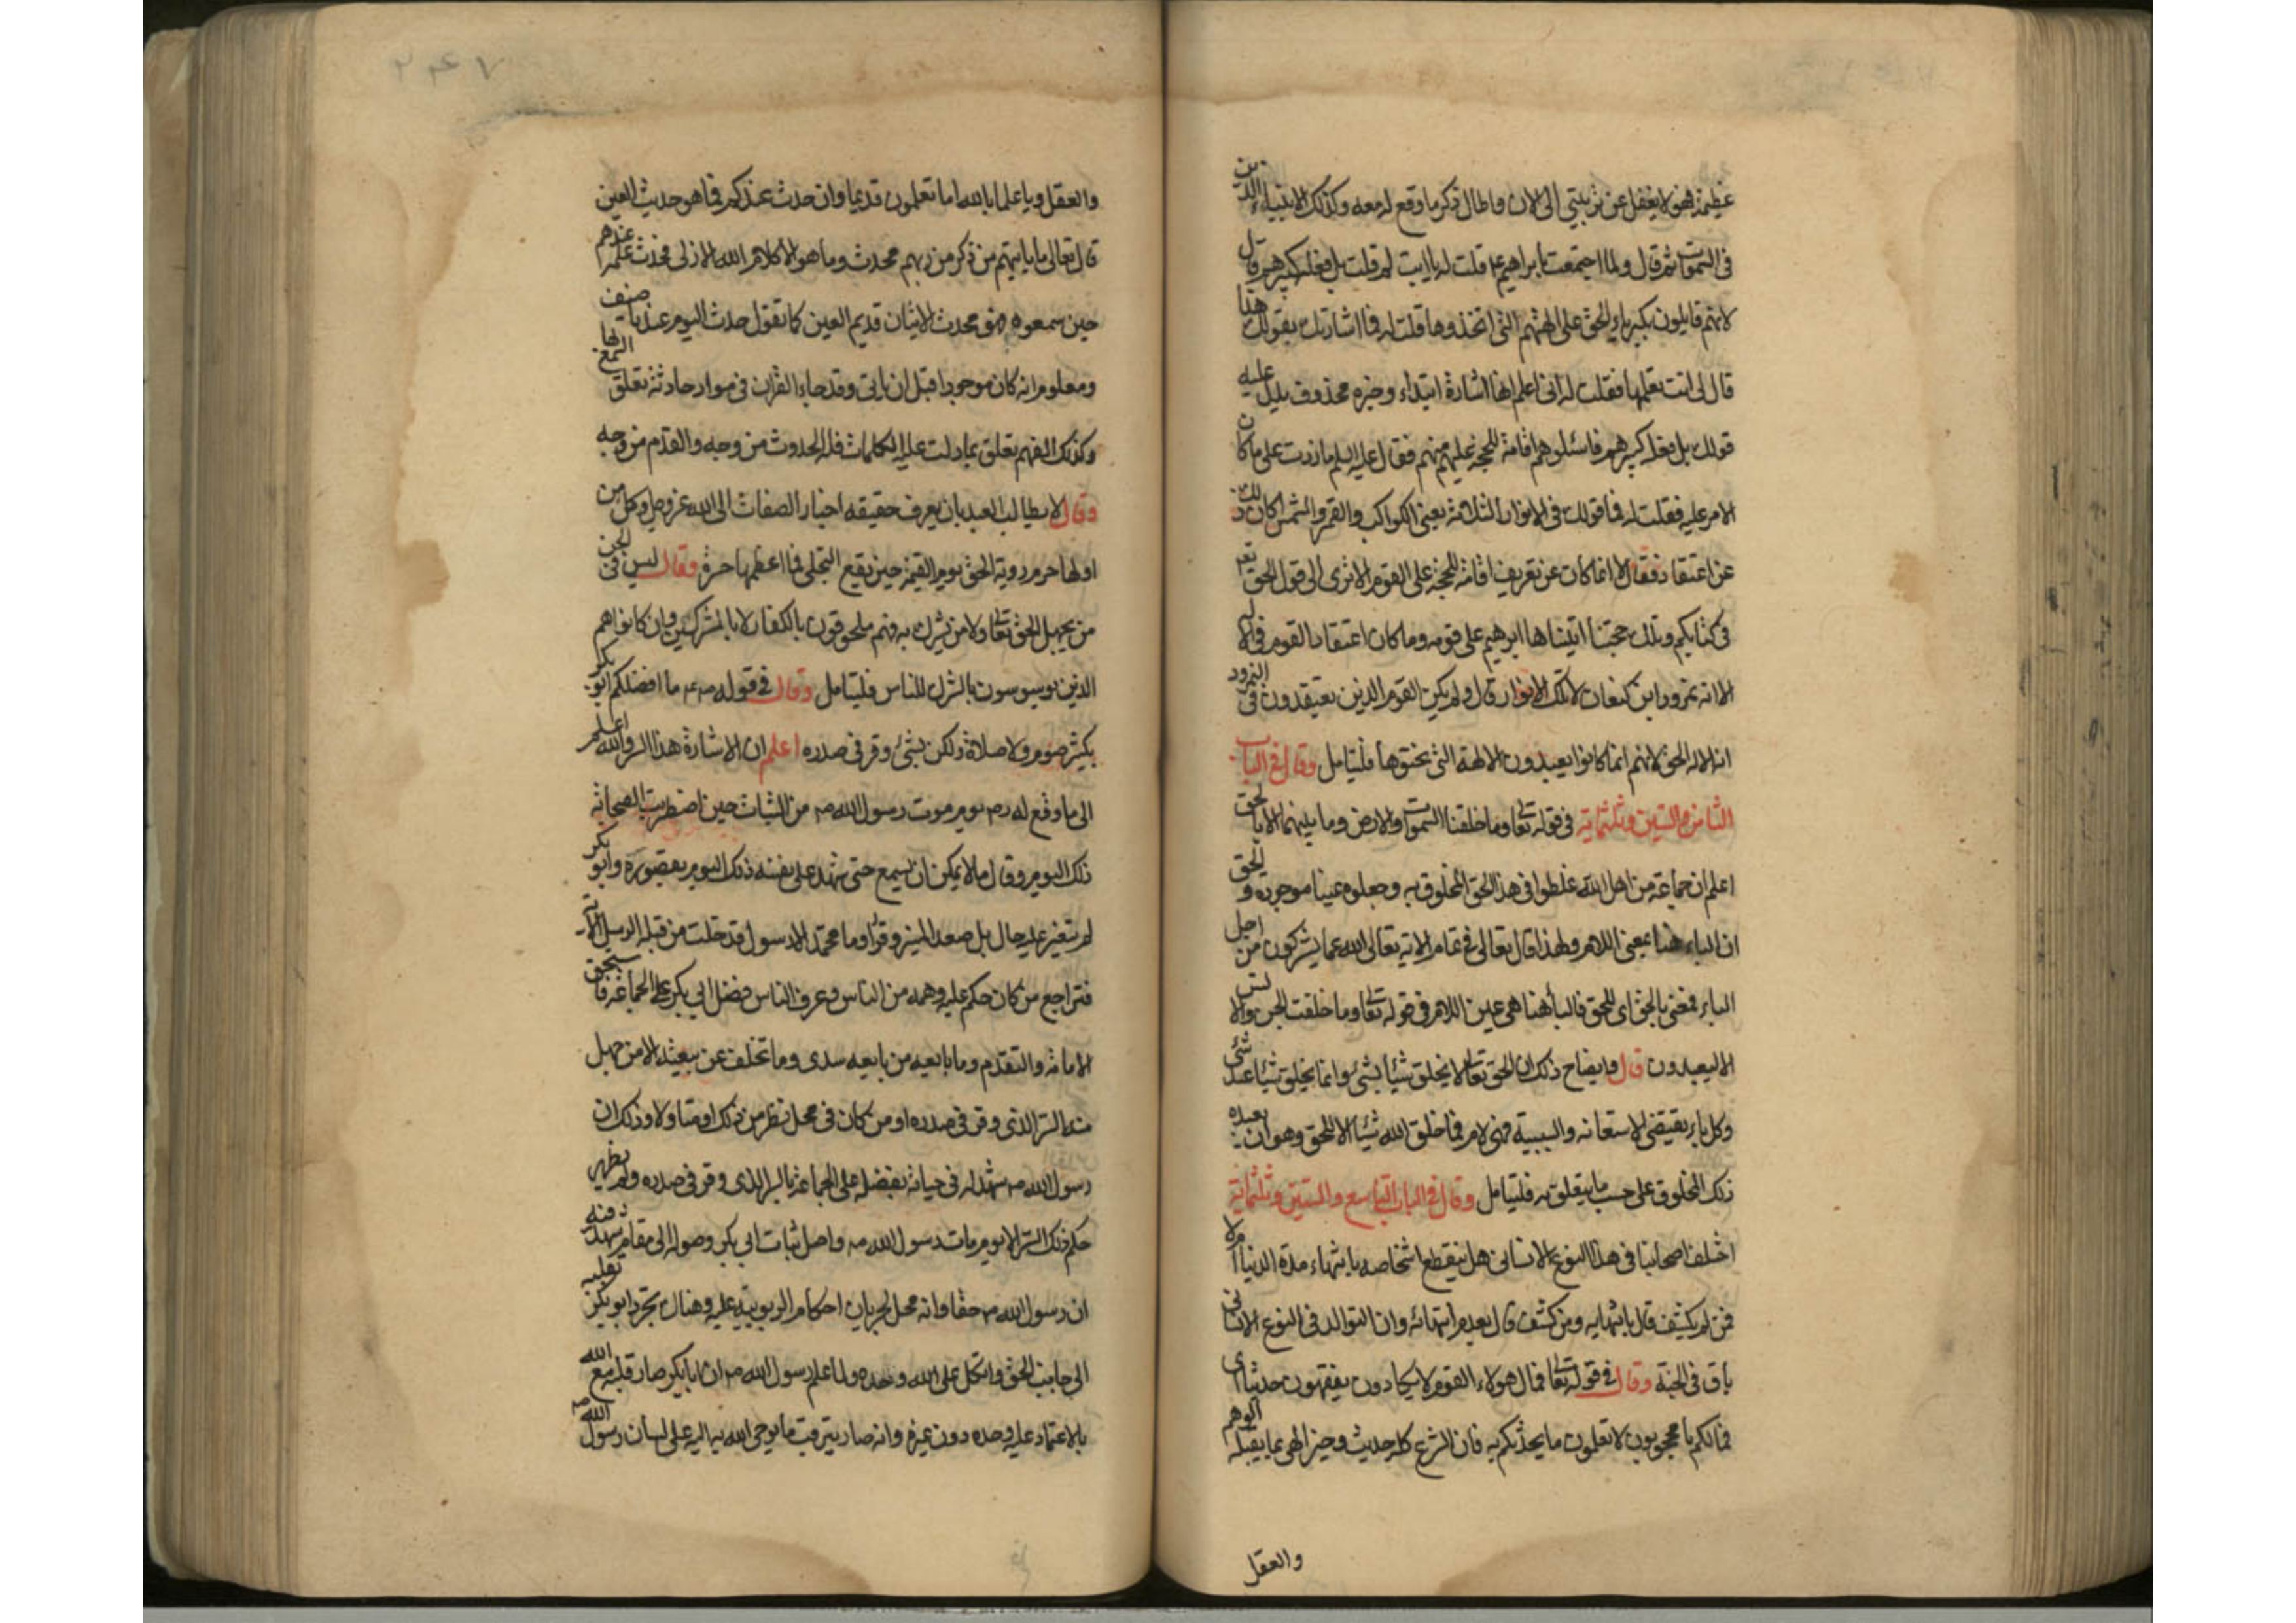 عظيمة فهو لا يغفل عن تربيتي الى الان واطال في ذكر ما وقع له معه وكذلك الانبياء الذين
في السموات ثم قال ولما اجتمعت بابراهيم ع قلت له يا ابت لم قلت بل فعله كبيرهم قال
لانهم قايلون بكبرياء الحق على الهتهم التي اتخذوها قلت له فما اشارتك بقولك هذا
قال لي انت تعلمها فقلت له اني اعلم انها اشارة ابتداء وخبره محذوف يدل عليه
قولك بل فعله كبيرهم فاسئلوهم اقامة للحجة عليهم منهم فقال عليه السلم ما زدت على ما كان
الامر عليه فقلت له فما قولك في الانوار الثلاثة يعني الكواكب والقمر والشمس اكان ذلك
عن اعتقاد فقال لا انما كان عن تعريف اقامة للحجة على القوم الا ترى الى قول الحق تعالى
في كتابكم وتلك حجتنا اتيناها ابرهيم على قومه وما كان اعتقاد القوم في الاله
الا انه نمرود ابن كنعان لا تلك الانوار قال ولم يكن القوم الذين يعتقدون في النمرود
انه الاله الحق لانهم انما كانوا يعبدون الالهة التي نحتوها فليتامل وقال في الباب
الثامن والستين وثلثمائة في قوله تعالى وما خلقنا السموات والارض وما بينهما الا بالحق
اعلم ان جماعة من اهل الله غلطوا في هذا الحق المخلوق به وجعلوه عينا موجوده والحق
ان الباء هنا بمعنى اللام ولهذا قال تعالى في تمام الاية تعالى الله عما يشركون من اجل
الباء فمعنى بالحق اي للحق فالباء هنا هي عين اللام في قوله تعالى وما خلقت الجن والانس
الا ليعبدون قال وايضاح ذلك ان الحق تعالى لا يخلق شيئا بشئ وانما يخلق شيئا عند شئ
وكل باء يقتضي الاستعانة والسببية فهي لام فما خلق الله شيئا الا للحق وهو ان يعبده
ذلك المخلوق على حسب ما يتعلق به فليتامل وقال في الباب التاسع والستين وثلثمائة
اختلف اصحابنا في هذا النوع الانساني هل ينقطع اشخاصه بانتهاء مدة الدنيا ام لا
فمن لم يكشف قال بانتهايه ومن كشف قال بعدم انتهائه وان التوالد في النوع الانساني
باق في الجنة وقال في قوله تعالى فمال هولاء القوم لا يكادون يفقهون حديثا اي
فما لكم يا محجوبون لا تعلمون ما يحدثكم به فان الشرع كله حديث وخبر الهي بما يقبله الوهم
والعقل
٢٤٧
والعقل ويا علماء بالله اما تعلمون قديما وان حدث عندكم فما هو حديث العين
قال تعالى ما ياتيهم من ذكر من ربهم محدث وما هو الا كلام الله الازلي فحدث علمه عندهم
حين سمعوه فهو محدث الاتيان قديم العين كما تقول حدث اليوم عندنا ضيف
ومعلوم انه كان موجودا قبل ان ياتي وقد جاء القران في مواد حادثة تعلق السمع بها
وكذلك الفهم تعلق بما دلت عليه الكلمات فله الحدوث من وجه والقدم من وجه
وقال لا يطالب العبد بان يعرف حقيقه اخبار الصفات الى الله عز وجل وكل من
اولها حرم روية الحق يوم القيمة حين يقع التجلي فما اعظمها حسرة وقال ليس في الجن
من يجهل الحق تعالى ولا من يشرك به فهم ملحوقون بالكفار لا بالمشركين وان كانوا هم
الذين يوسوسون بالشرك للناس فليتامل وقال في قوله صم ما افضلكم ابو بكر
بكثير صوم ولا صلاة ولكن بشئ وقر في صدره اعلم ان الاشارة بهذا السر والله اعلم
الى ما وقع له رم يوم موت رسول الله صم من الثبات حين اضطربت الصحابة
ذلك اليوم وقال ما لا يمكن ان يسمع حتى شهد على نفسه ذلك اليوم بقصوره وابو بكر
لم يتغير عليه حال بل صعد المنبر وقرا وما محمد الا رسول قد خلت من قبله الرسل الاية
فتراجع من كان حكم عليه وهمه من الناس وعرف الناس فضل ابي بكر على الجماعة فاستحق
الامامة والتقدم وما بايعه من بايعه سدى وما تخلف عن بيعته الا من جهل
منه السر الذي وقر في صدره او من كان في محل نظر من ذلك او متاولا وذلك ان
رسول الله صم شهد له في حياته بفضله على الجماعة بالسر الذي وقر في صدره ولم يظهر
حكم ذلك السر الا يوم مات رسول الله صم واصل ثبات ابي بكر وصوله الى مقام شهد فيه
ان رسول الله صم حقا وانه محل لجريان احكام الربوبية عليه وهناك تجرد ابو بكر بقلبه
الى جانب الحق واتكل على الله وحده ولما علم رسول الله صم ان ابا بكر صار قلبه مع الله
بالاعتماد عليه وحده دون غيره وانه صار يترقب ما يوحي الله به اليه على لسان رسول الله صم